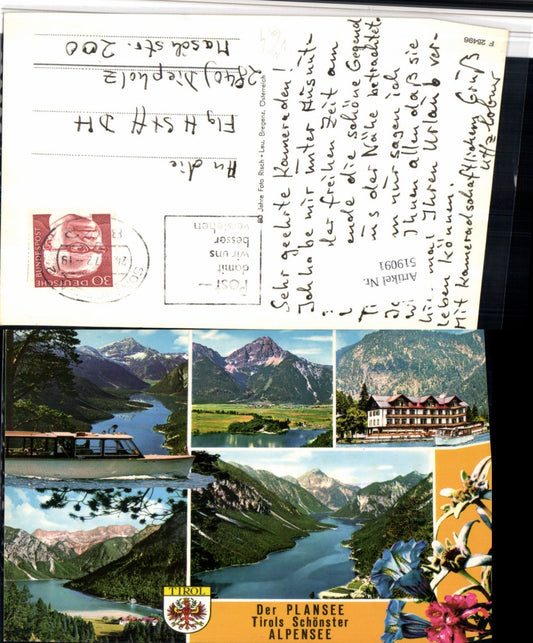 Sehr geehrte Kameraden!
Ich habe mir unter Ausnüt-
der freihen Zeit am
ende die schöne Gegend
aus der Nähe betrachtet.
nur sagen ich
Ihnen allen daß sie
hier mal Ihren Urlaub ver-
leben können.
Mit Kameradschaftlichem Gruß
F 25496
80 Jahre Foto Risch-Lau, Bregenz, Österreich
An die
Flg H Stff DH
2840 Diepholz
Maschstr. 200
30 DEUTSCHE
BUNDESPOST
Post-
damit
wir uns
besser
verstehen
Artikel Nr.
519091
TIROL
Der PLANSEE
Tirols Schönster
ALPENSEE